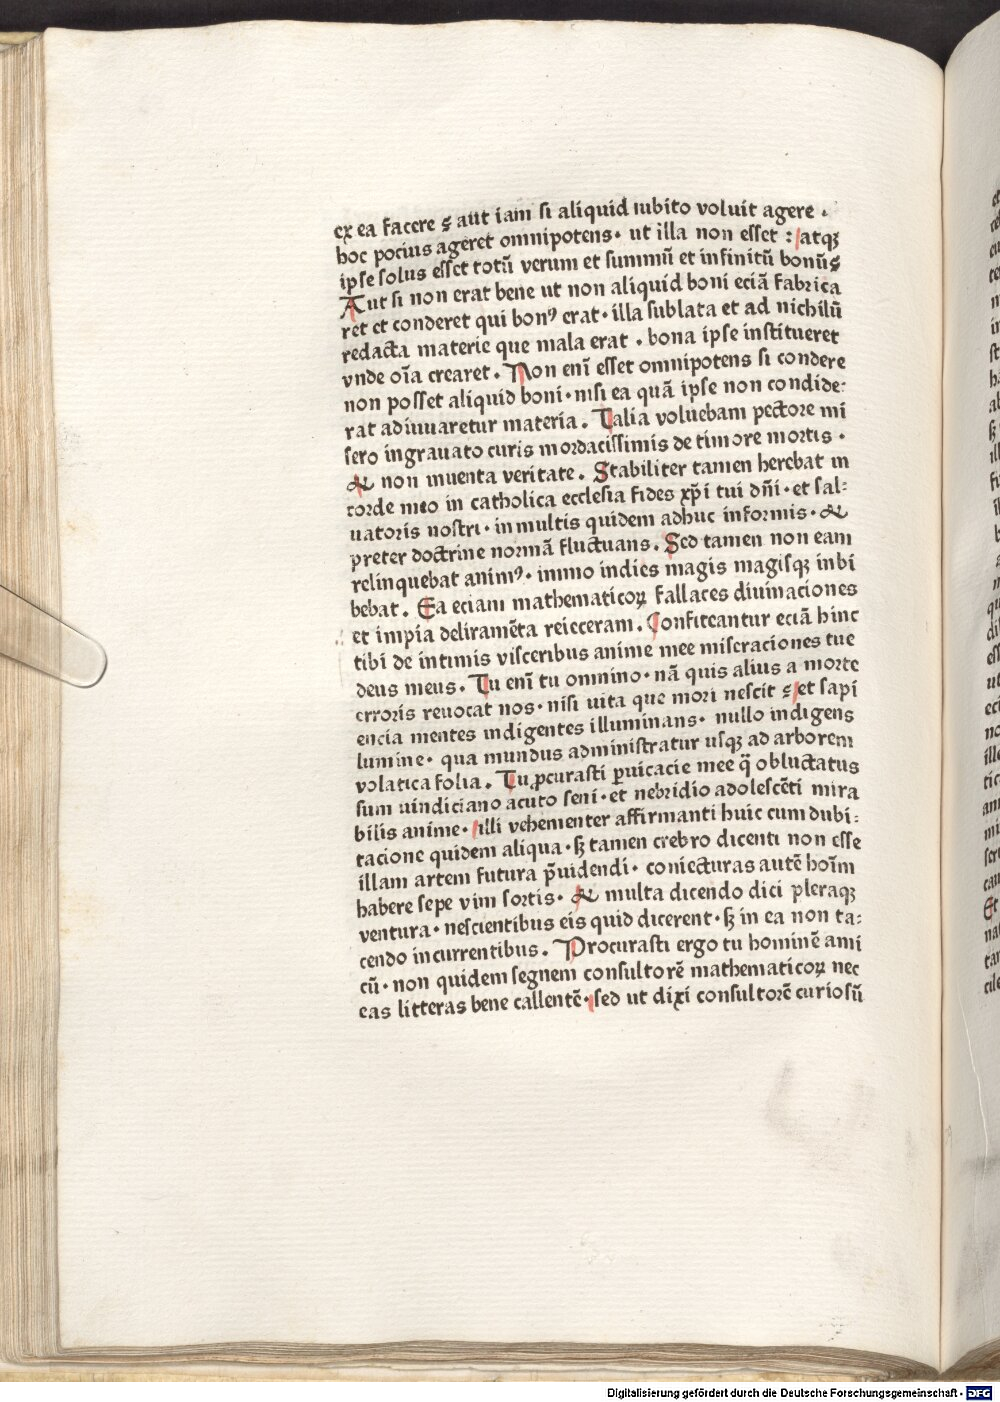 ex ea facere ⸮ aut iam si aliquid subito voluit agere ·
hoc pocius ageret omnipotens · ut illa non esset : atqꝫ
ipse solus esset totū verum et summū et infinitū bonū⸮
Aut si non erat bene ut non aliquid boni eciā fabrica
ret et conderet qui bonꝰ erat · illa sublata et ad nichilū
redacta materie que mala erat · bona ipse institueret
vnde oīa crearet . Non enī esset omnipotens si condere
non posset aliquid boni · nisi ea quā ipse non condide:
rat adiuuaretur materia . Talia voluebam pectore mi
sero ingrauato curis mordacissimis de timore mortis ·
& non inuenta veritate . Stabiliter tamen herebat in
corde meo in catholica ecclesia fides xp̄i tui dn̄i · et sal:
uatoris nostri · in multis quidem adhuc informis · &
preter doctrine normā fluctuans . Sed tamen non eam
relinquebat animꝰ · immo indies magis magisqꝫ inbi
bebat . Ea eciam mathematicoꝝ fallaces diuinaciones
et impia deliramēta reieceram . Confiteantur eciā hinc
tibi de intimis visceribus anime mee miseraciones tue
deus meus . Tu enī tu omnino · nā quis alius a morte
erroris reuocat nos · nisi uita que mori nescit ⸮ et sapi
encia mentes indigentes illuminans · nullo indigens
lumine · qua mundus administratur usqꝫ ad arborem
volatica folia . Tu ꝓcurasti ꝑuicacie mee q̄ obluctatus
sum uindiciano acuto seni · et nebridio adolescēti mira
bilis anime · illi vehementer affirmanti huic cum dubi:
tacione quidem aliqua · sꝫ tamen crebro dicenti non esse
illam artem futura p̄uidendi · coniecturas autē hoīm
habere sepe vim sortis · & multa dicendo dici pleraqꝫ
ventura · nescientibus eis quid dicerent · sꝫ in ea non ta:
cendo incurrentibus . Procurasti ergo tu hominē ami
cū · non quidem segnem consultorē mathematicoꝝ nec
eas litteras bene callentē · sed ut dixi consultorē curiosū
Digitalisierung gefördert durch die Deutsche Forschungsgemeinschaft - DFG